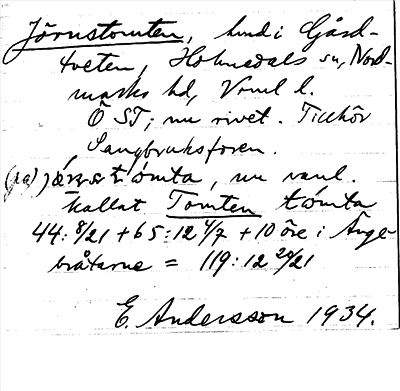 Jörnstomten, hmd i Gård-
tveten, Holmedals sn, Nord-
marks hd, Vrml l.
Ö ST; nu rivet. Tillhör
Långbruksforen.
(på) tɷmta, nu vanl.
kallat Tomten tɷmta
44: 8/21 + 65:12 4/7 + 10 öre i Änge-
bråtarne = 119:12 20/21
E. Andersson 1934.